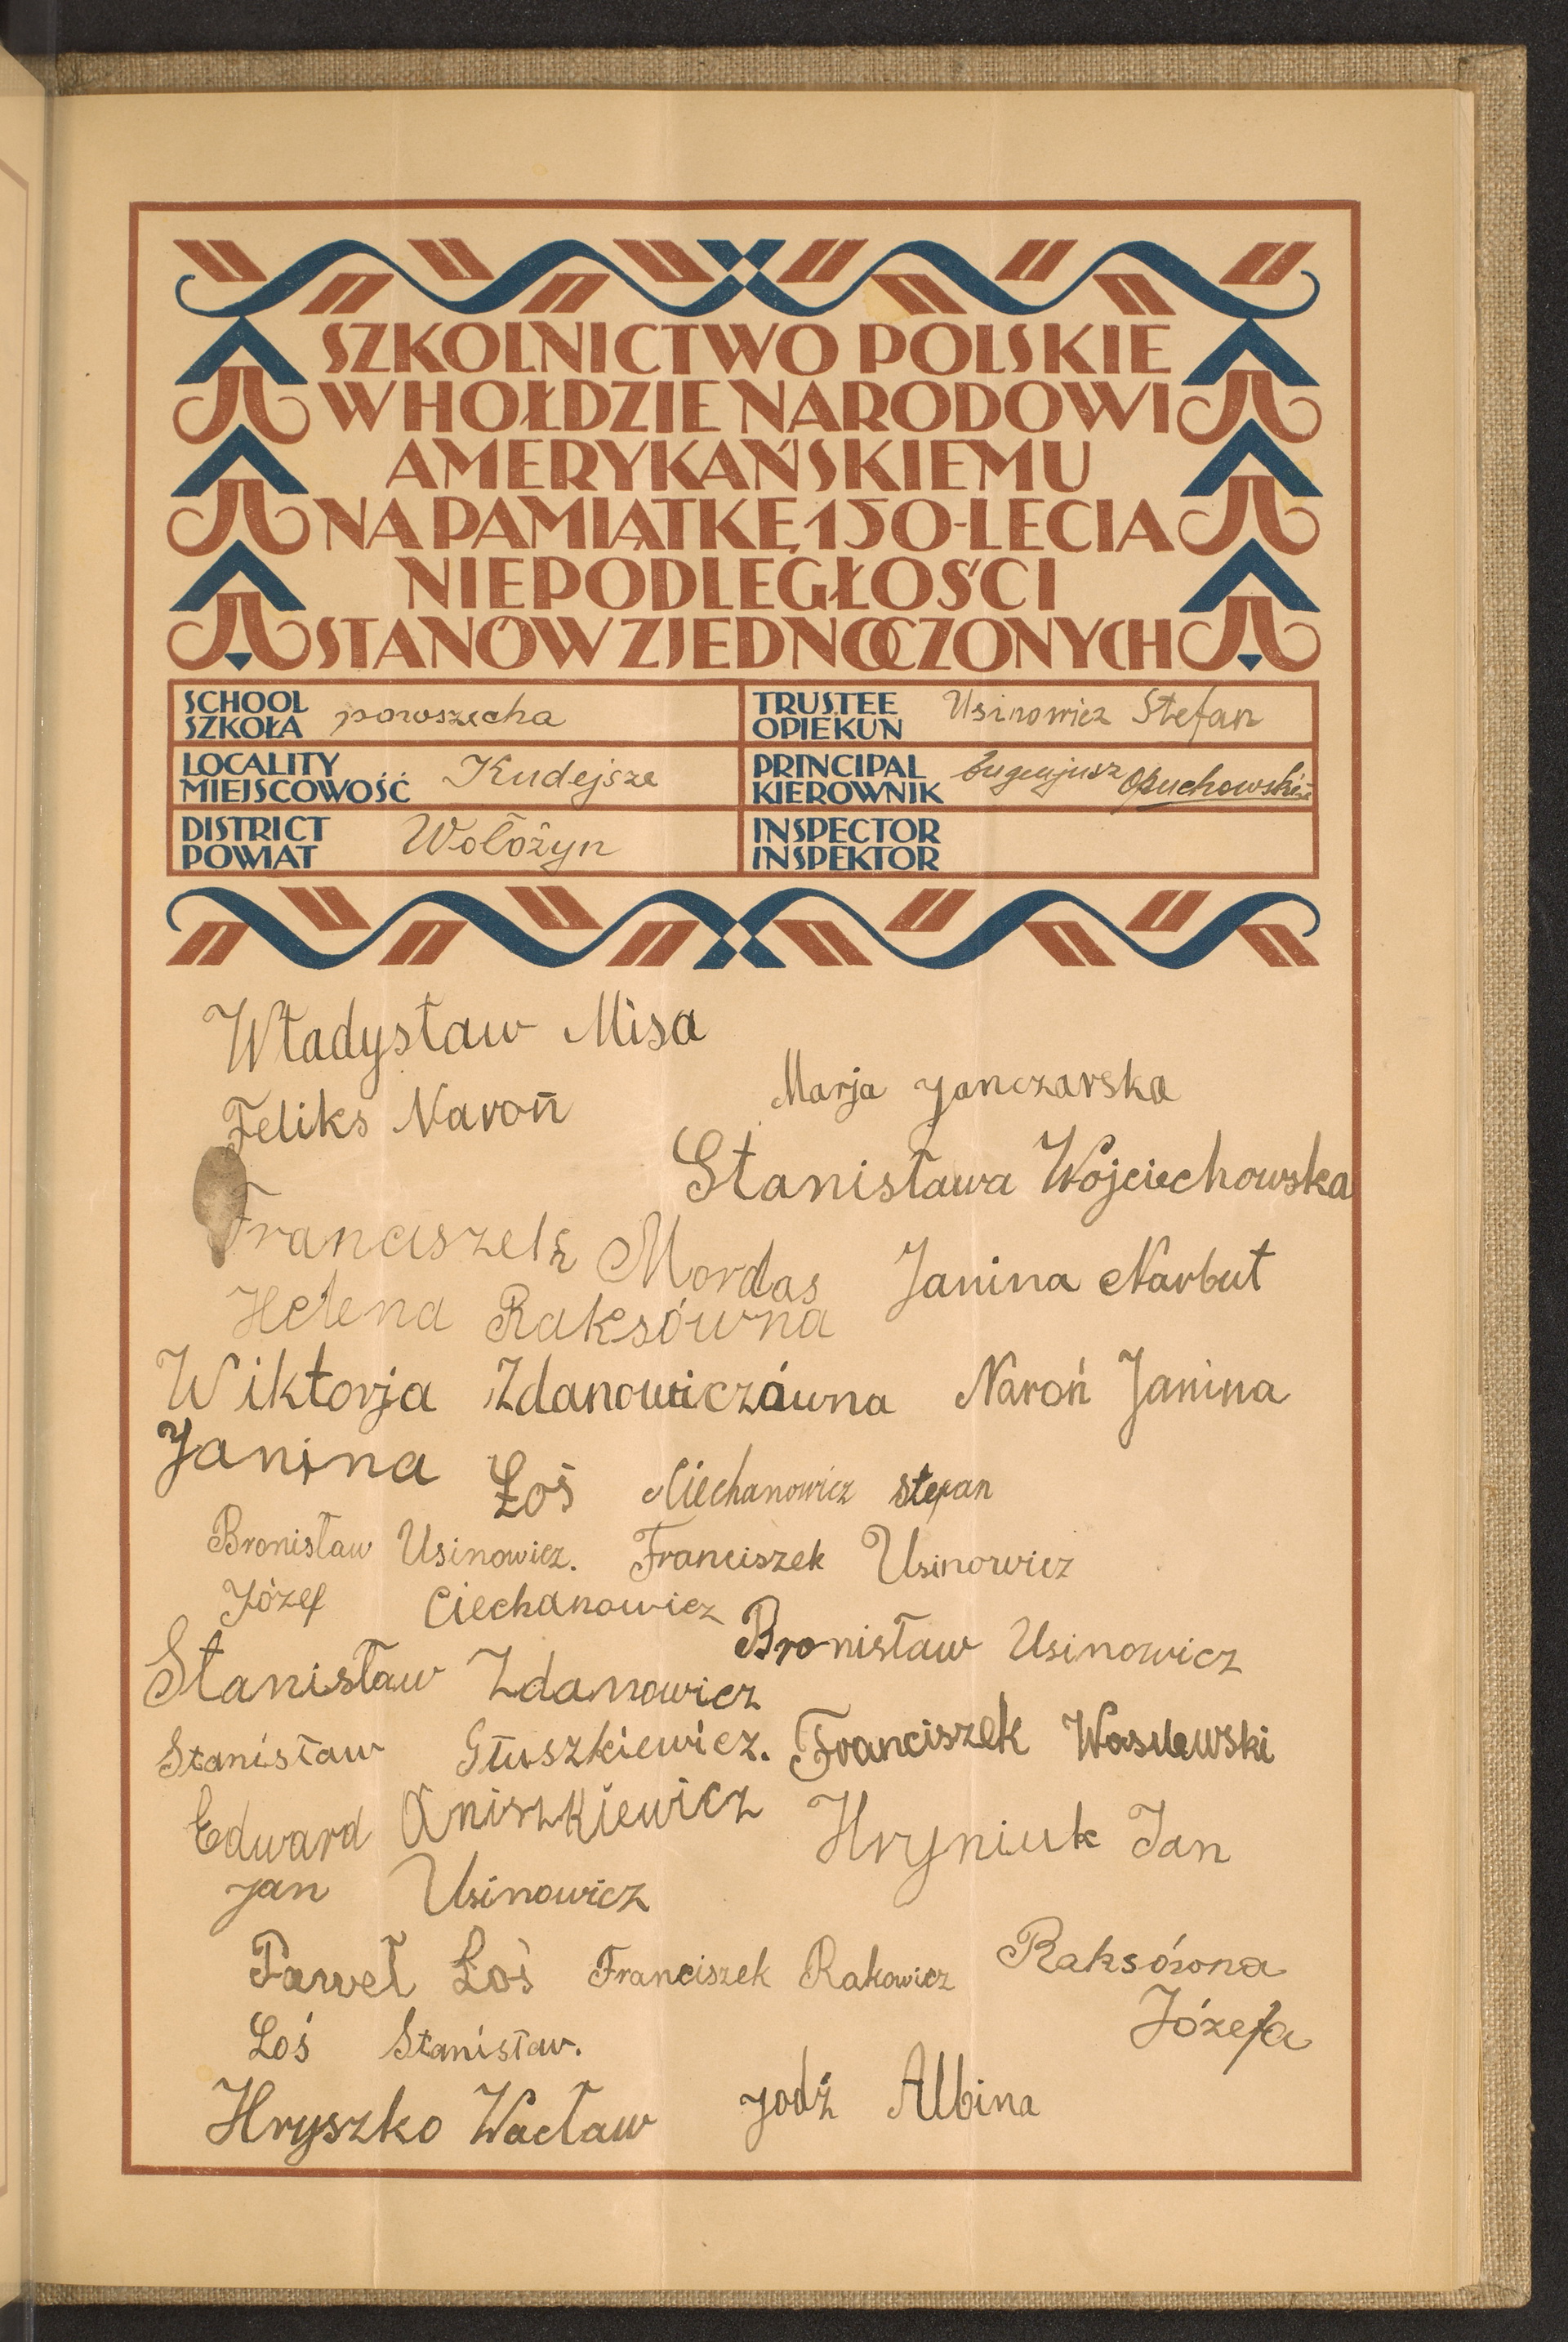 SZKOLNICTWO POLSKIE
W HOŁDZIE NARODOWI
AMERYKAŃSKIEMU
NA PAMIĄTKĘ 150-LECIA
NIEPODLEGŁOŚCI
STANÓW ZJEDNOCZONYCH
SCHOOL
SZKOŁA powszecha
TRUSTEE
OPIEKUN Usinowicz Stefan
LOCALITY
MIEJSCOWOŚĆ Kudejsze
PRINCIPAL
KIEROWNIK Eugenjusz Opuchowski
DISTRICT
POWIAT Wołożyn
INSPECTOR
INSPEKTOR
Władysław Misa
Marja Janczarska
Feliks Naroń
Stanisława Wojciechowska
Franciszek Mordas
Janina Narbut
Helena Raksówna
Wiktorja Zdanowiczówna
Naroń Janina
Janina Łoś
Ciechanowicz Stefan
Bronisław Usinowicz.
Franciszek Usinowicz
Józef Ciechanowicz
Bronisław Usinowicz
Stanisław Zdanowicz
Stanisław Głuszkiewicz.
Franciszek Wasilewski
Edward Aniszkiewicz
Hryniuk Jan
Jan Usinowicz
Paweł Łoś
Franciszek Rakowicz
Raksówna
Józefa
Łoś Stanisław.
Hryszko Wacław
Jodź Albina